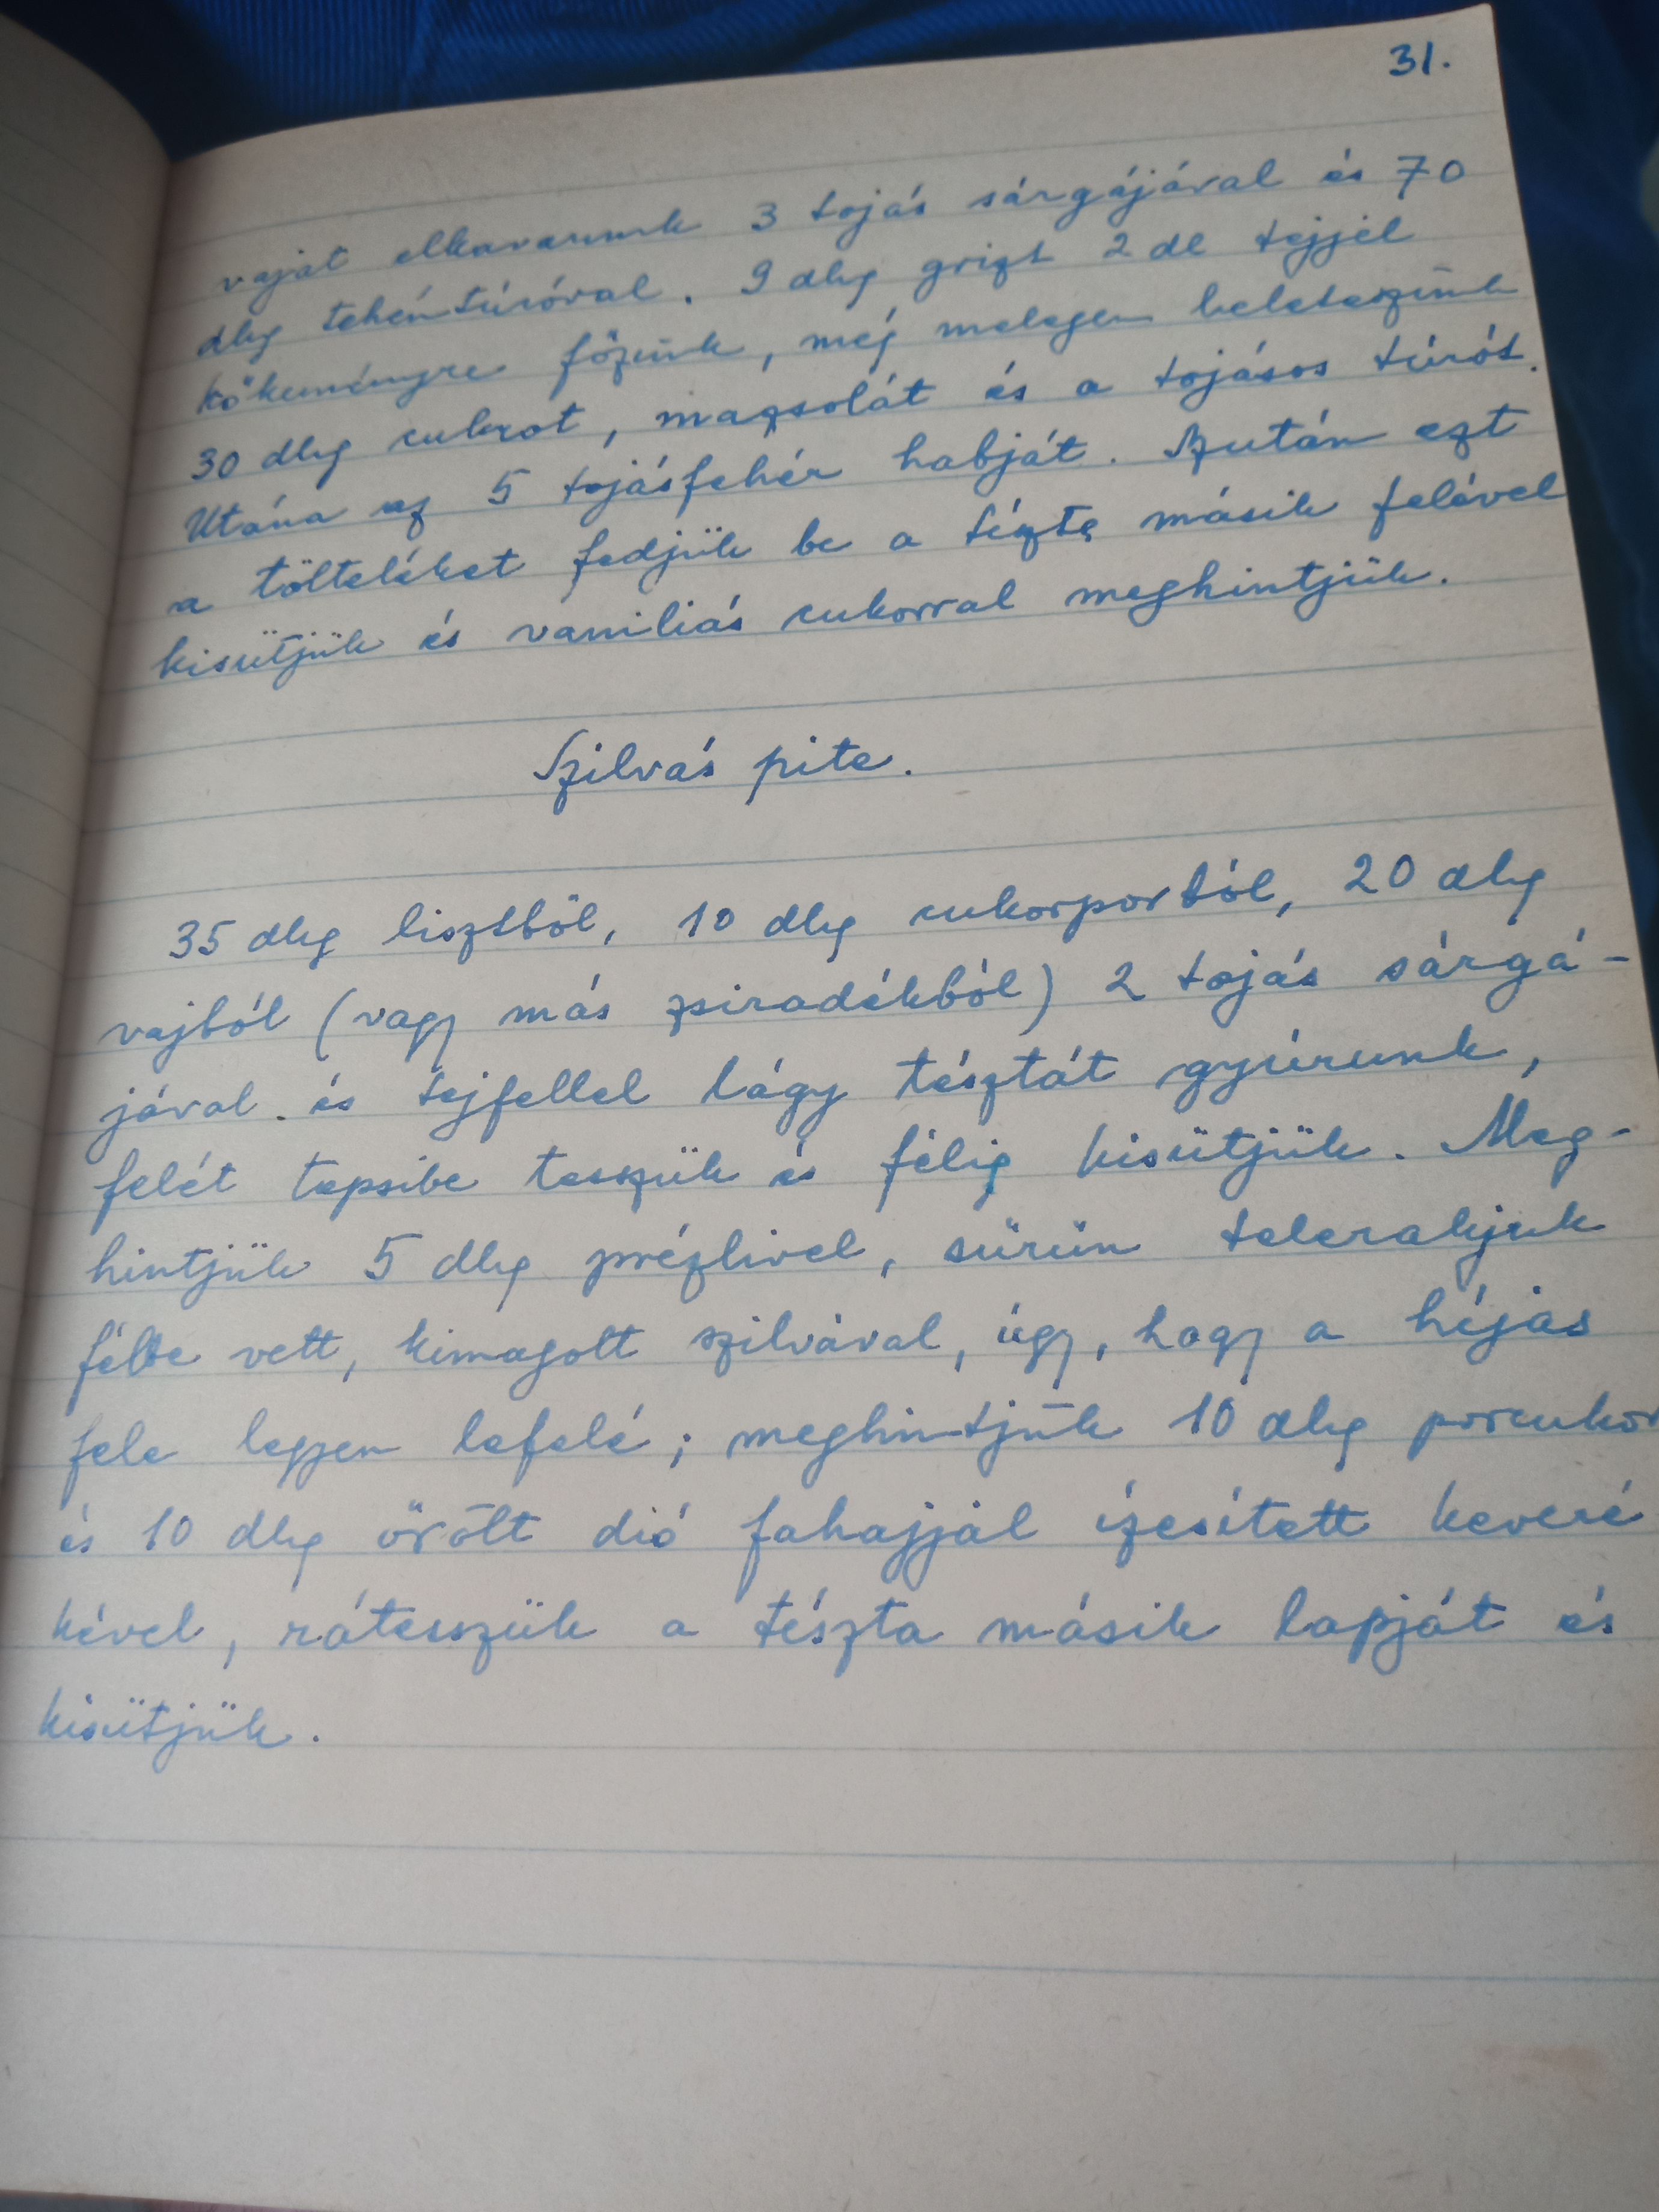 31.
vajat elkavarunk 3 tojás sárgájával és 70
dkg tehéntúróval. 9 dkg grizt 2 dl tejjel
kőkeményre főzünk, még melegen beleteszünk
30 dkg cukrot, mazsolát és a tojásos túrót.
Utána az 5 tojásfehér habját. Azután ezt
a tölteléket fedjük be a tészta másik felével
kisütjük és vaniliás cukorral meghintjük.
Szilvás pite.
35 dkg lisztből, 10 dkg cukorporból, 20 dkg
vajból (vagy más zsiradékból) 2 tojás sárgá-
jával. és tejfellel lágy tésztát gyúrunk,
felét tepsibe tesszük és félig kisütjük. Meg-
hintjük 5 dkg prézlivel, sürün telerakjuk
félbe vett, kimagolt szilvával, úgy, hogy a héjas
fele legyen lefelé; meghintjük 10 dkg porcukor
és 10 dkg őrölt dió fahajjal ízesített keveré
kével, rátesszük a tészta másik lapját és
kisütjük.